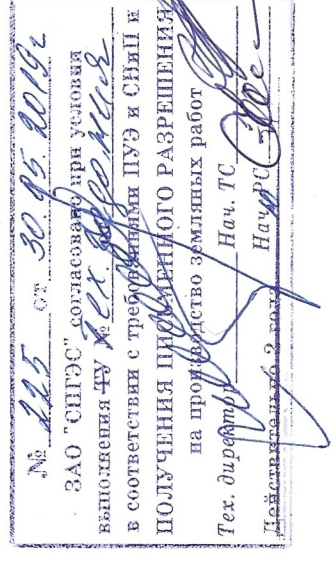 № 225 от 30.05.2019г
ЗАО "СПГЭС" согласовано при условии
выполнения ТУ №
в соответствии с требованиями ПУЭ и СНиП и
ПОЛУЧЕНИЯ ПИСЬМЕННОГО РАЗРЕШЕНИЯ
на производство земляных работ
Тех. директор Нач. ТС
Нач. РС
Действительно 2 года